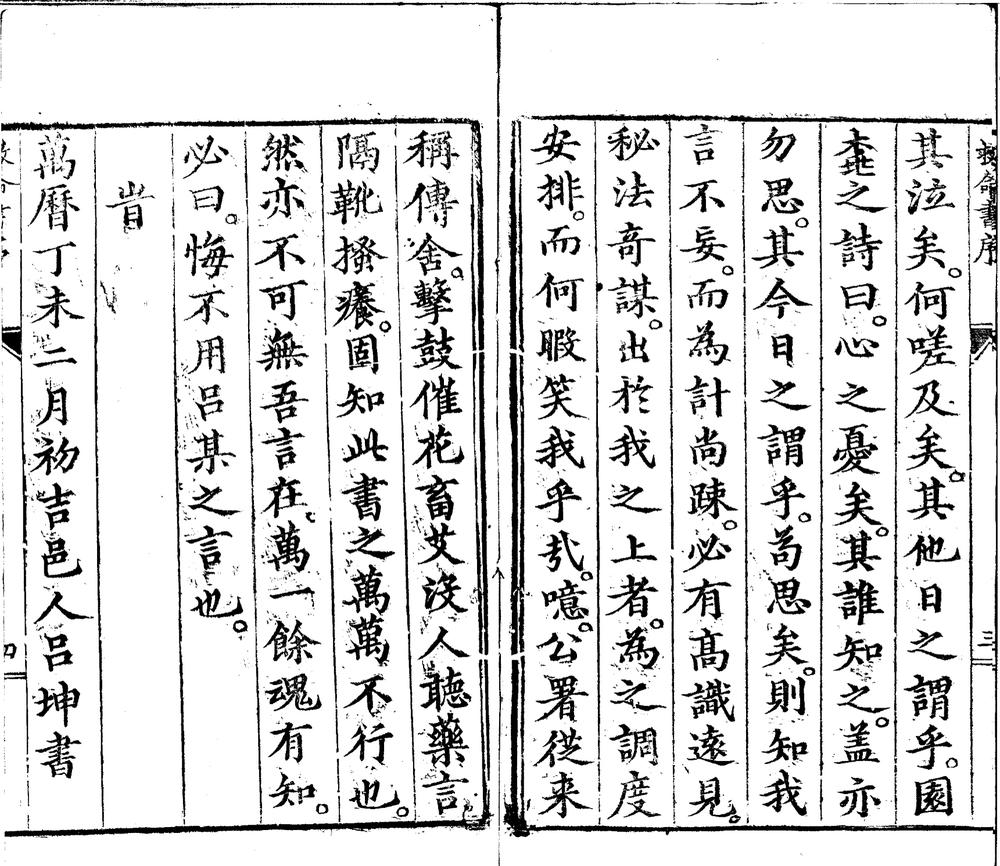 救命書序
三
其泣矣。何嗟及矣。其他日之謂乎。園
桃之詩曰。心之憂矣。其誰知之。盖亦
勿思。其今日之謂乎。苟思矣。則知我
言不妄。而為計尚踈。必有高識遠見。
秘法奇謀。出於我之上者。為之調度
安排。而何暇笑我乎㢤。噫。公署從来
稱傳舍。擊鼓催花畜艾沒人聽藥言
隔靴搔癢。固知此書之萬萬不行也。
然亦不可無吾言在。萬一餘魂有知。
必曰。悔不用吕某之言也。
旹
萬曆丁未二月初吉邑人吕坤書